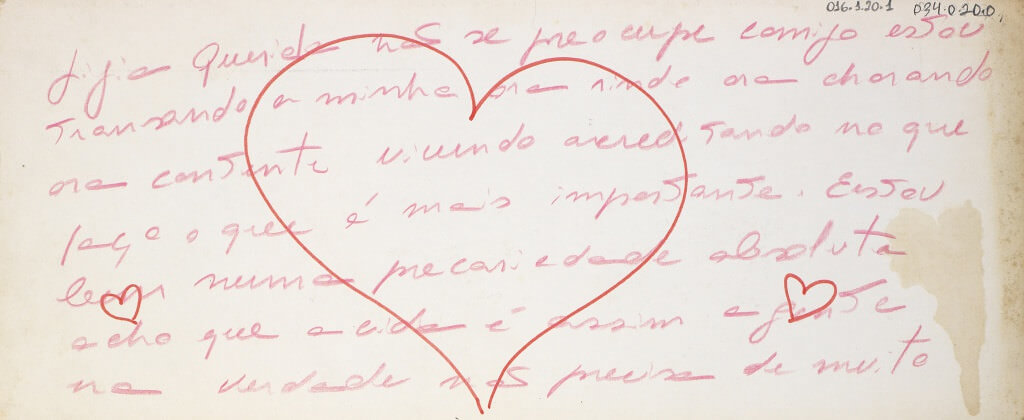 016.1.20.1 034.0.20.0,
Ligia Querida não se preocupe comigo estou
transando a minha ora rindo ora chorando
ora contente vivendo acreditando no que
faço o que é mais importante. Estou
bem numa precariedade absoluta
acho que a vida é assim a gente
na verdade não precisa de muito